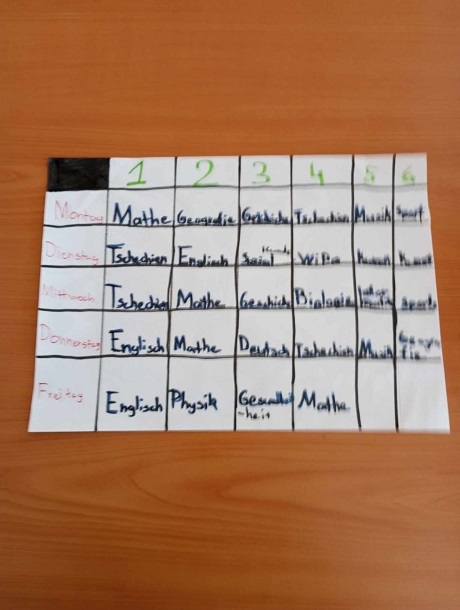 1 2 3 4 5 6
Montag Mathe Geografie Geschichte Tschechien Musik Sport
Dienstag Tschechien Englisch WiPa Kunst Kunst
Mittwoch Tschechien Mathe Geschichte Biologie Sport
Donnerstag Englisch Mathe Deutsch Tschechien Musik
Freitag Englisch Physik Mathe